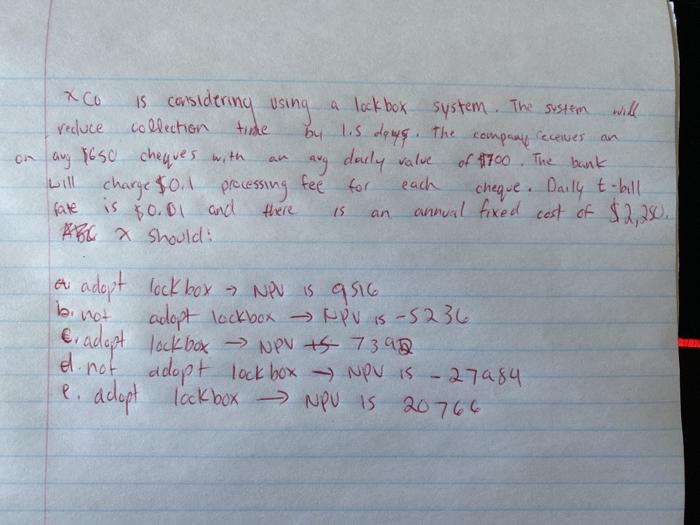 x Co is considering using a lockbox system. The system will
reduce collection time by 1.5 days. The company receives an
on avg $650 cheques with an avg daily value of $700. The bank
will charge $0.1 processing fee for each cheque. Daily t-bill
rate is $0.01 and there is an annual fixed cost of $2,250.
ABC x should:
a. adopt lockbox → NPV is 9516
b. not adopt lockbox → NPV is -5236
c. adopt lockbox → NPV is 7392
d. not adopt lockbox → NPV is -27984
e. adopt lockbox → NPV is 20766